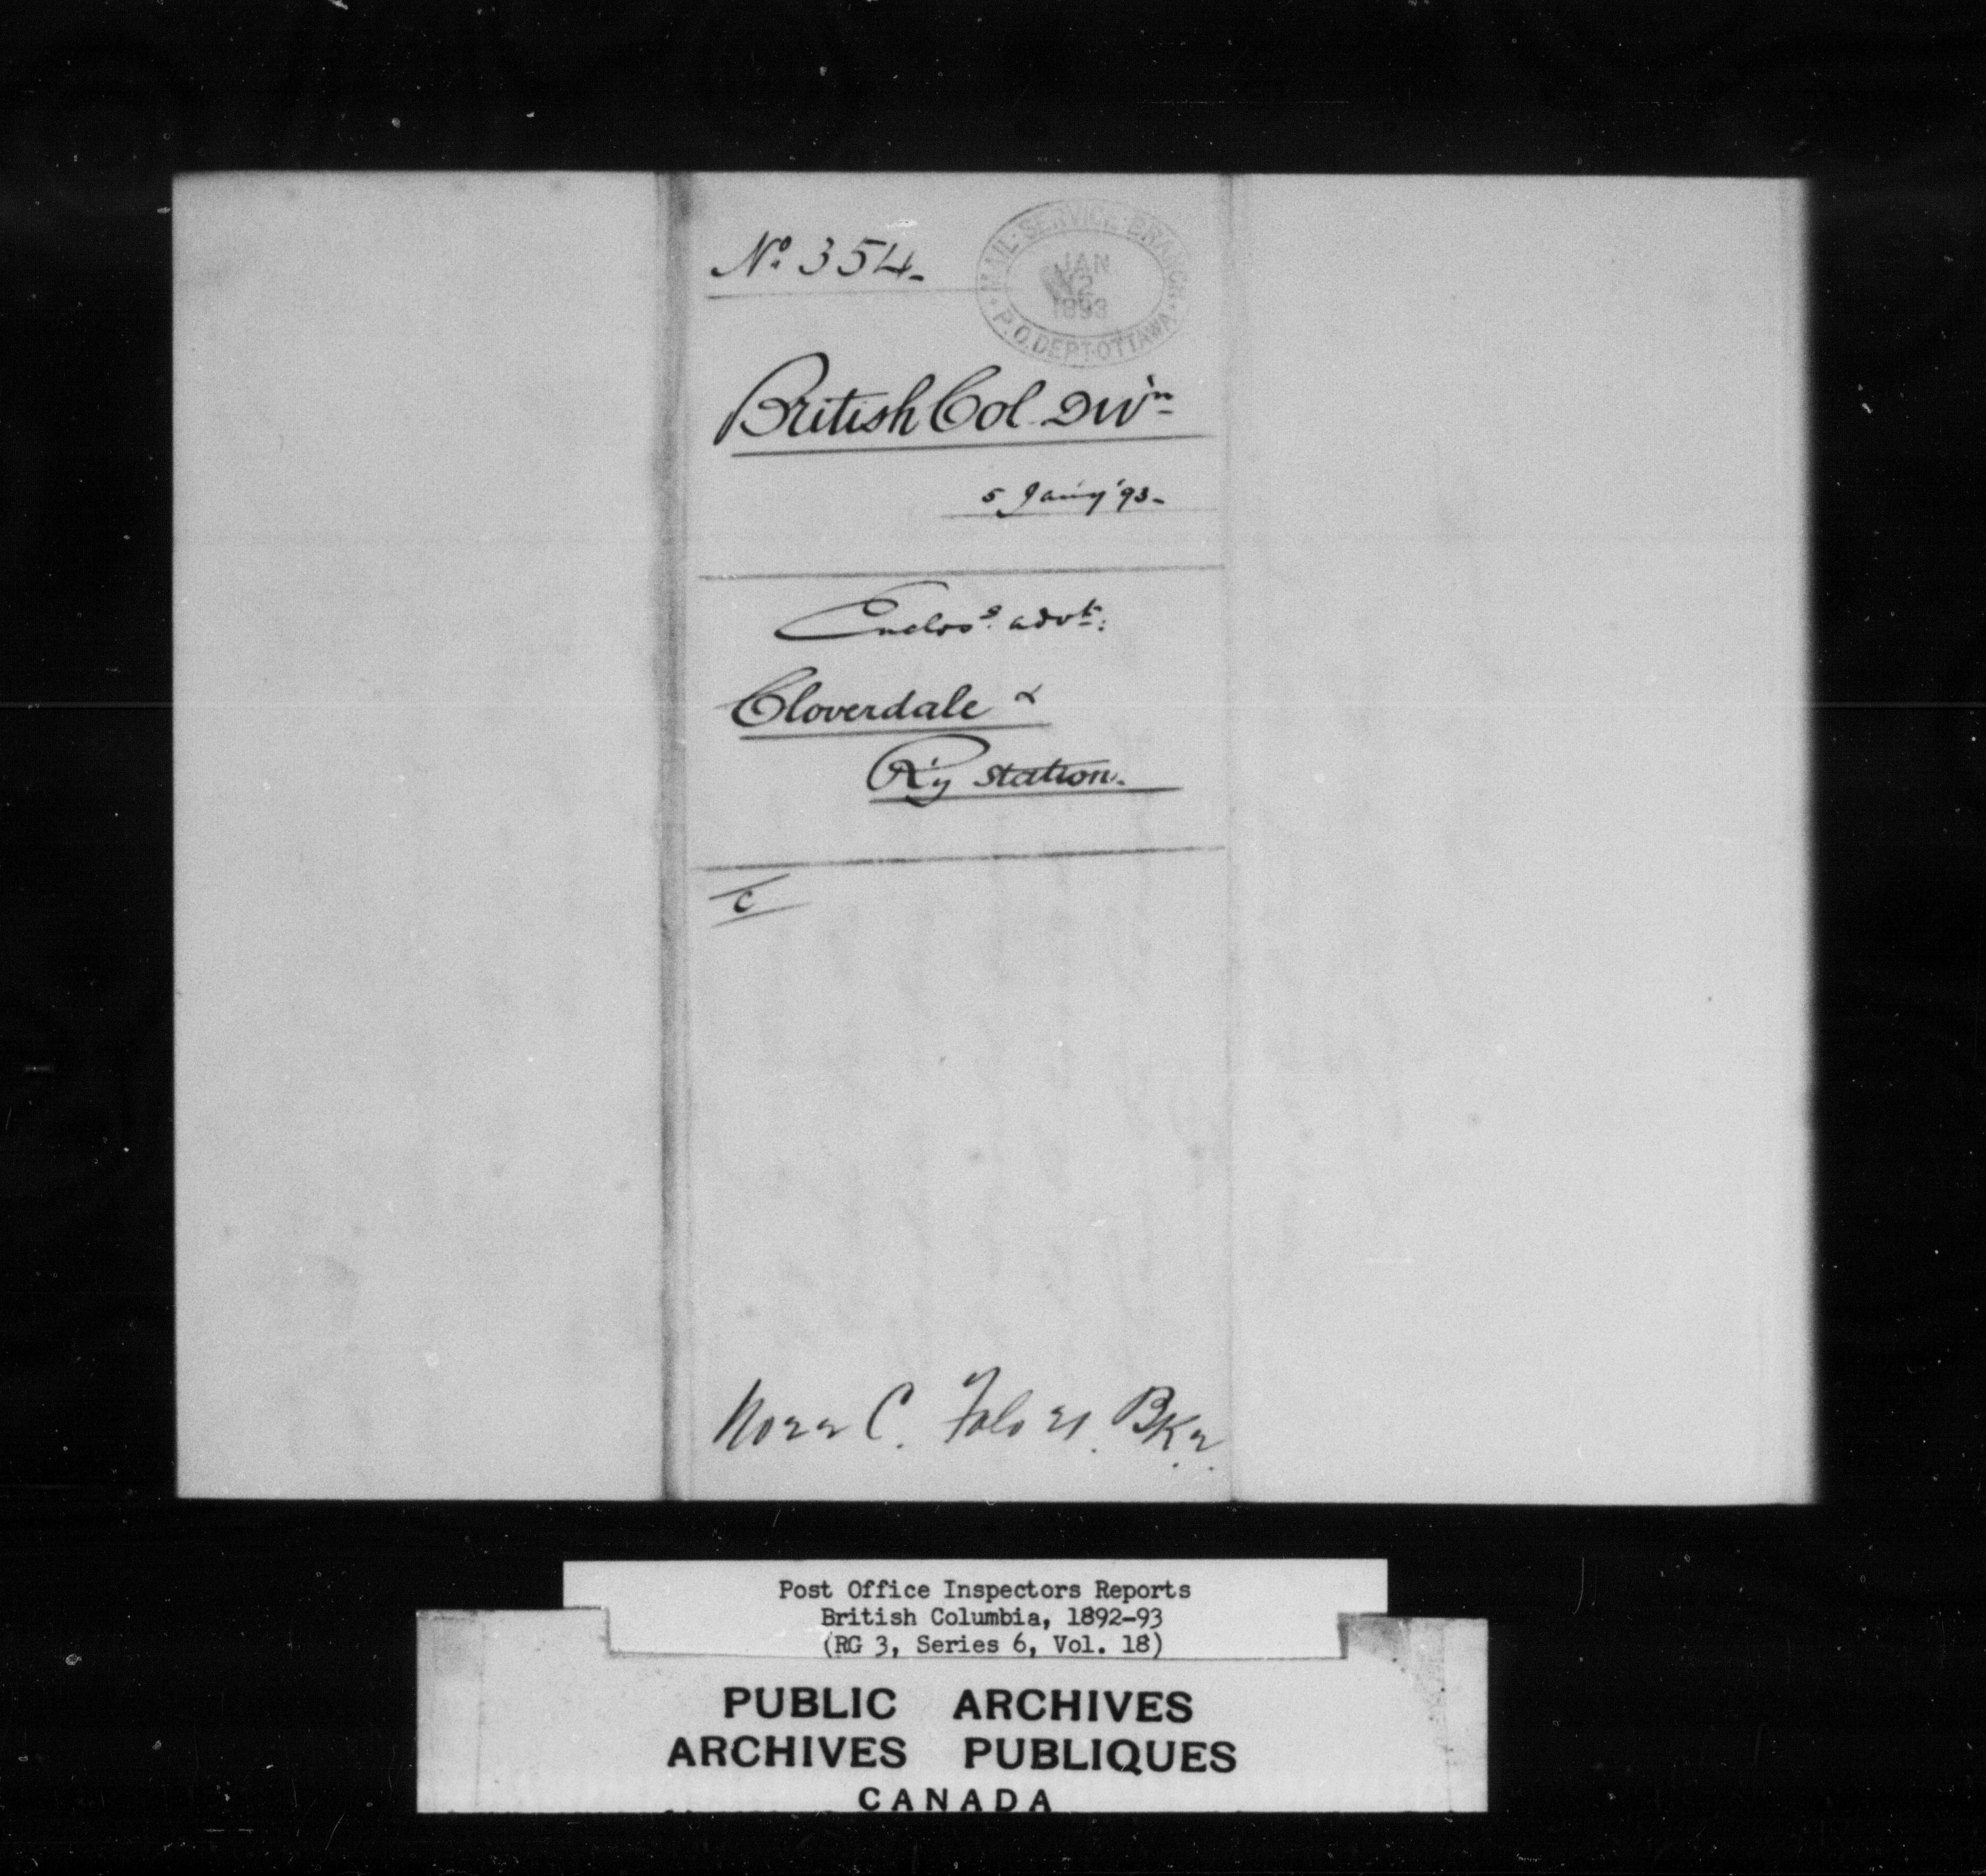 No. 354.
MAIL · SERVICE · BRANCH
JAN
12
1893
P.O. DEPT. OTTAWA
British Col. Divn
5 Jany '93.
Enclos. advt:
Cloverdale &
R'y station.
C
C. Folo 21. BK
Post Office Inspectors Reports
British Columbia, 1892-93
(RG 3, Series 6, Vol. 18)
PUBLIC ARCHIVES
ARCHIVES PUBLIQUES
CANADA